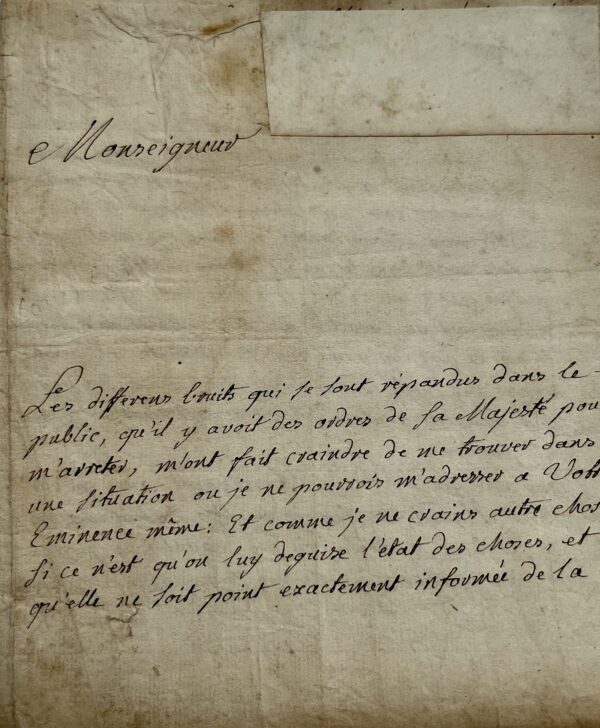 Monseigneur
Les differens bruits qui se sont répandus dans le
public, qu'il y avoit des ordres de sa Majesté pou
m'arreter, m'ont fait craindre de me trouver dans
une situation ou je ne pourrois m'adresser a Votr
Eminence même: Et comme je ne crains autre chos
si ce n'est qu'on luy deguise l'état des choses, et
qu'elle ne soit point exactement informée de la